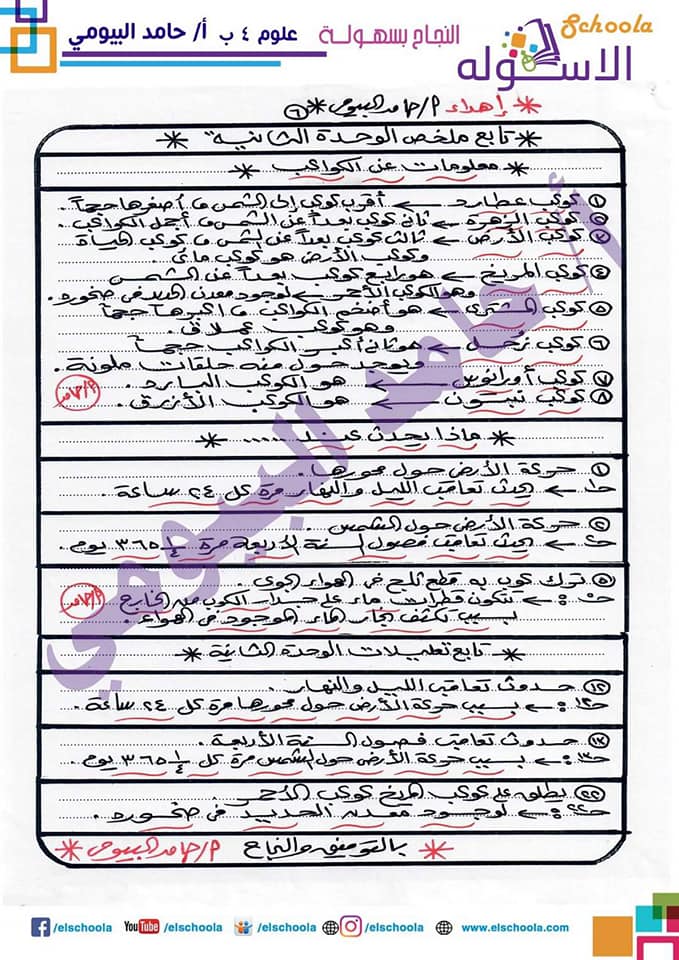 علوم ٤ ب أ/ حامد البيومي
النجاح بسهولة
Schoola
الاسكوله
* إهداء م/حامد البيومي * ٦
* تابع ملخص الوحدة الثانية *
* معلومات عن الكواكب *
① كوكب عطارد ← أقرب كوكب إلى الشمس و أصغرها حجماً .
② كوكب الزهرة ← ثاني كوكب بعداً عن الشمس و أجمل الكواكب .
③ كوكب الأرض ← ثالث كوكب بعداً عن الشمس و كوكب الحياة
وكوكب الأرض هو كوكب مائي
④ كوكب المريخ ← هو رابع كوكب بعداً عن الشمس
وهو الكوكب الأحمر ← لوجود معدن الحديد في صخوره .
⑤ كوكب المشترى ← هو أضخم الكواكب و أكبرها حجماً
وهو كوكب عملاق .
⑥ كوكب زحل ← هو ثاني أكبر الكواكب حجماً
ويوجد حول منه حلقات ملونة .
⑦ كوكب أورانوس ← هو الكوكب البارد .
⑧ كوكب نبتون ← هو الكوكب الأزرق .
م/حامد
* ماذا يحدث عند ..... *
① حركة الأرض حول محورها .
حـ١ ← يحدث تعاقب الليل والنهار مرة كل ٢٤ ساعة .
② حركة الأرض حول الشمس .
حـ٢ ← يحدث تعاقب فصول السنة الأربعة مرة كل ٣٦٥ ١/٤ يوم .
⑤ ترك كوب به قطع ثلج في الهواء الجوي .
حـ٥ : ← تتكون قطرات ماء على جدار الكوب من الخارج
بسبب تكثف بخار الماء الموجود في الهواء .
م/حامد
* تابع تعليلات الوحدة الثانية *
⑫ حدوث تعاقب الليل والنهار .
حـ١٢ : ← بسبب حركة الأرض حول محورها مرة كل ٢٤ ساعة .
⑬ حدوث تعاقب فصول السنة الأربعة .
حـ١٣ : ← بسبب حركة الأرض حول الشمس مرة كل ٣٦٥ ١/٤ يوم .
㉒ يطلق على كوكب المريخ كوكب الأحمر .
حـ٢٢ : ← لوجود معدن الحديد في صخوره .
* بالتوفيق والنجاح م/حامد البيومي *
أ/حامد البيومي
/elschoola YouTube /elschoola /elschoola /elschoola www.elschoola.com